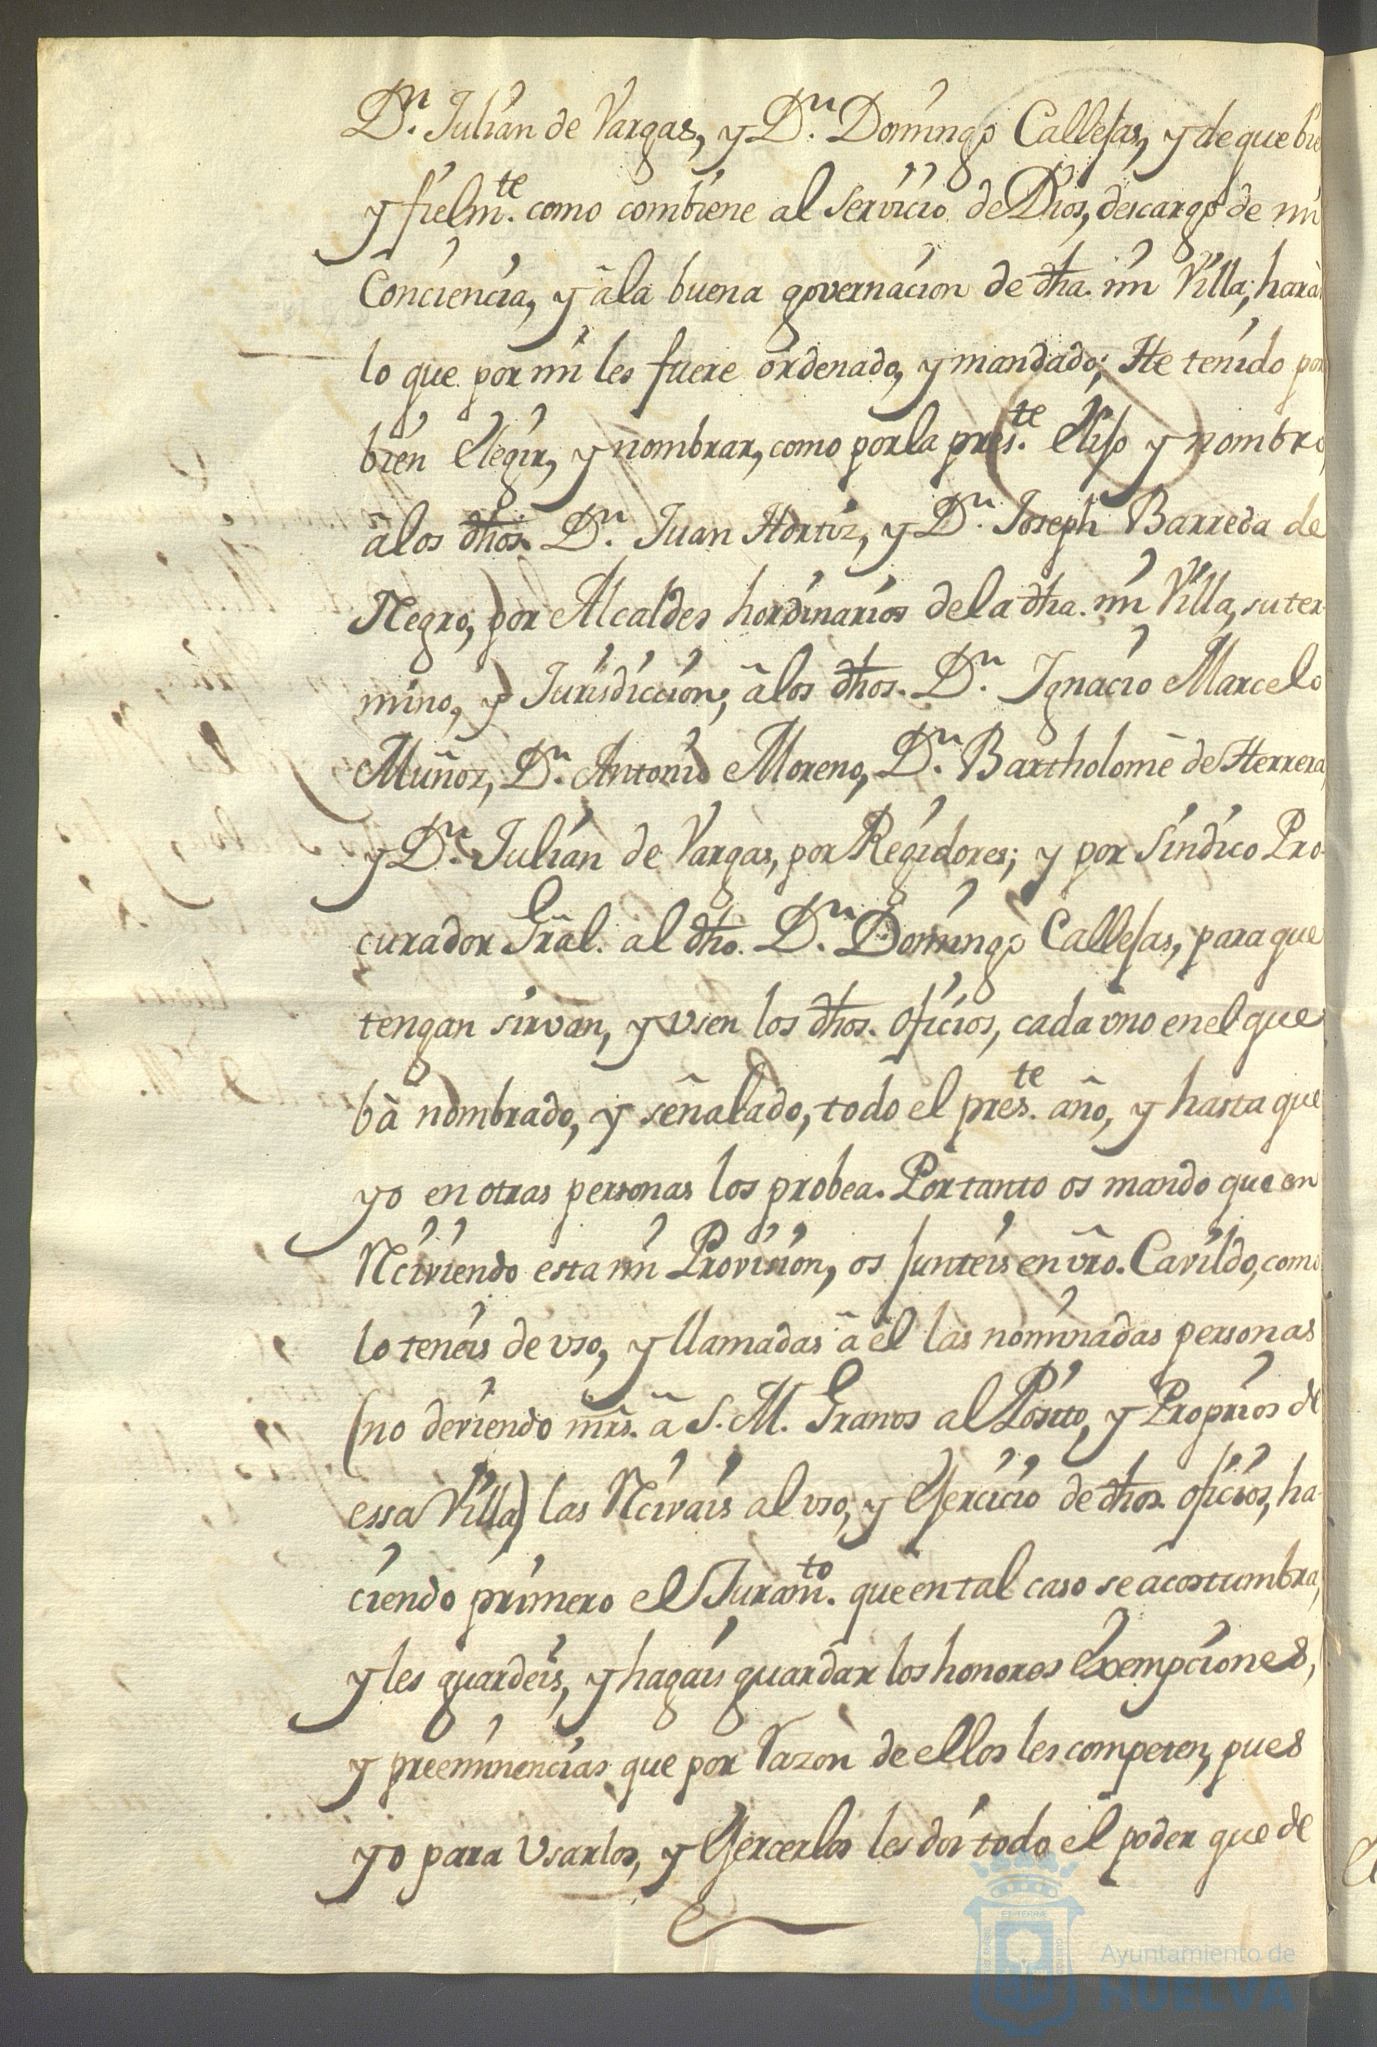 Dn. Julian de Vargas, y Dn. Domingo Callejas, y de que bie
y fielmte. como combiene al servicio de Dios, descargo de mi
Conciencia, y â la buena governacion de dha. mi Villa, harà
lo que por mi les fuere ordenado, y mandado; He tenido por
bien elegir, y nombrar, como por la preste. elijo y nombro,
â los dhos. Dn. Juan Hortiz, y Dn. Joseph Barreda de
Negro, por Alcaldes hordinarios de la dha. mi Villa, su ter-
mino, y Jurisdiccion; â los dhos. Dn. Ignacio Marcelo
Muñoz, Dn. Antonio Moreno, Dn. Bartholomê de Herrera,
y Dn. Julian de Vargas, por Regidores; y por Sindico Pro-
curador Grâl. al dho. Dn. Domingo Callejas, para que
tengan sirvan, y usen los dhos. oficios, cada vno en el que
bâ nombrado, y señalado, todo el preste. año, y hasta que
yo en otras personas los probea. Por tanto os mando que en
Rciviendo esta mi Provision, os junteis en vrô. Cavildo, como
lo teneis de vso, y llamadas â êl las nominadas personas
(no deviendo mrs. â S. M. Granos al Posito, y Proprios de
essa Villa) las Rcivais al vso, y Ejercicio de dhos. oficios, ha-
ciendo primero el Juramto. que en tal caso se acostumbra,
y les guardeis, y hagais guardar los honores Exempciones,
y preeminencias que por razon de ellos les competen, pues
yo para Usarlos, y Ejercerlos les doi todo el poder que de
Ayuntamiento de
HUELVA